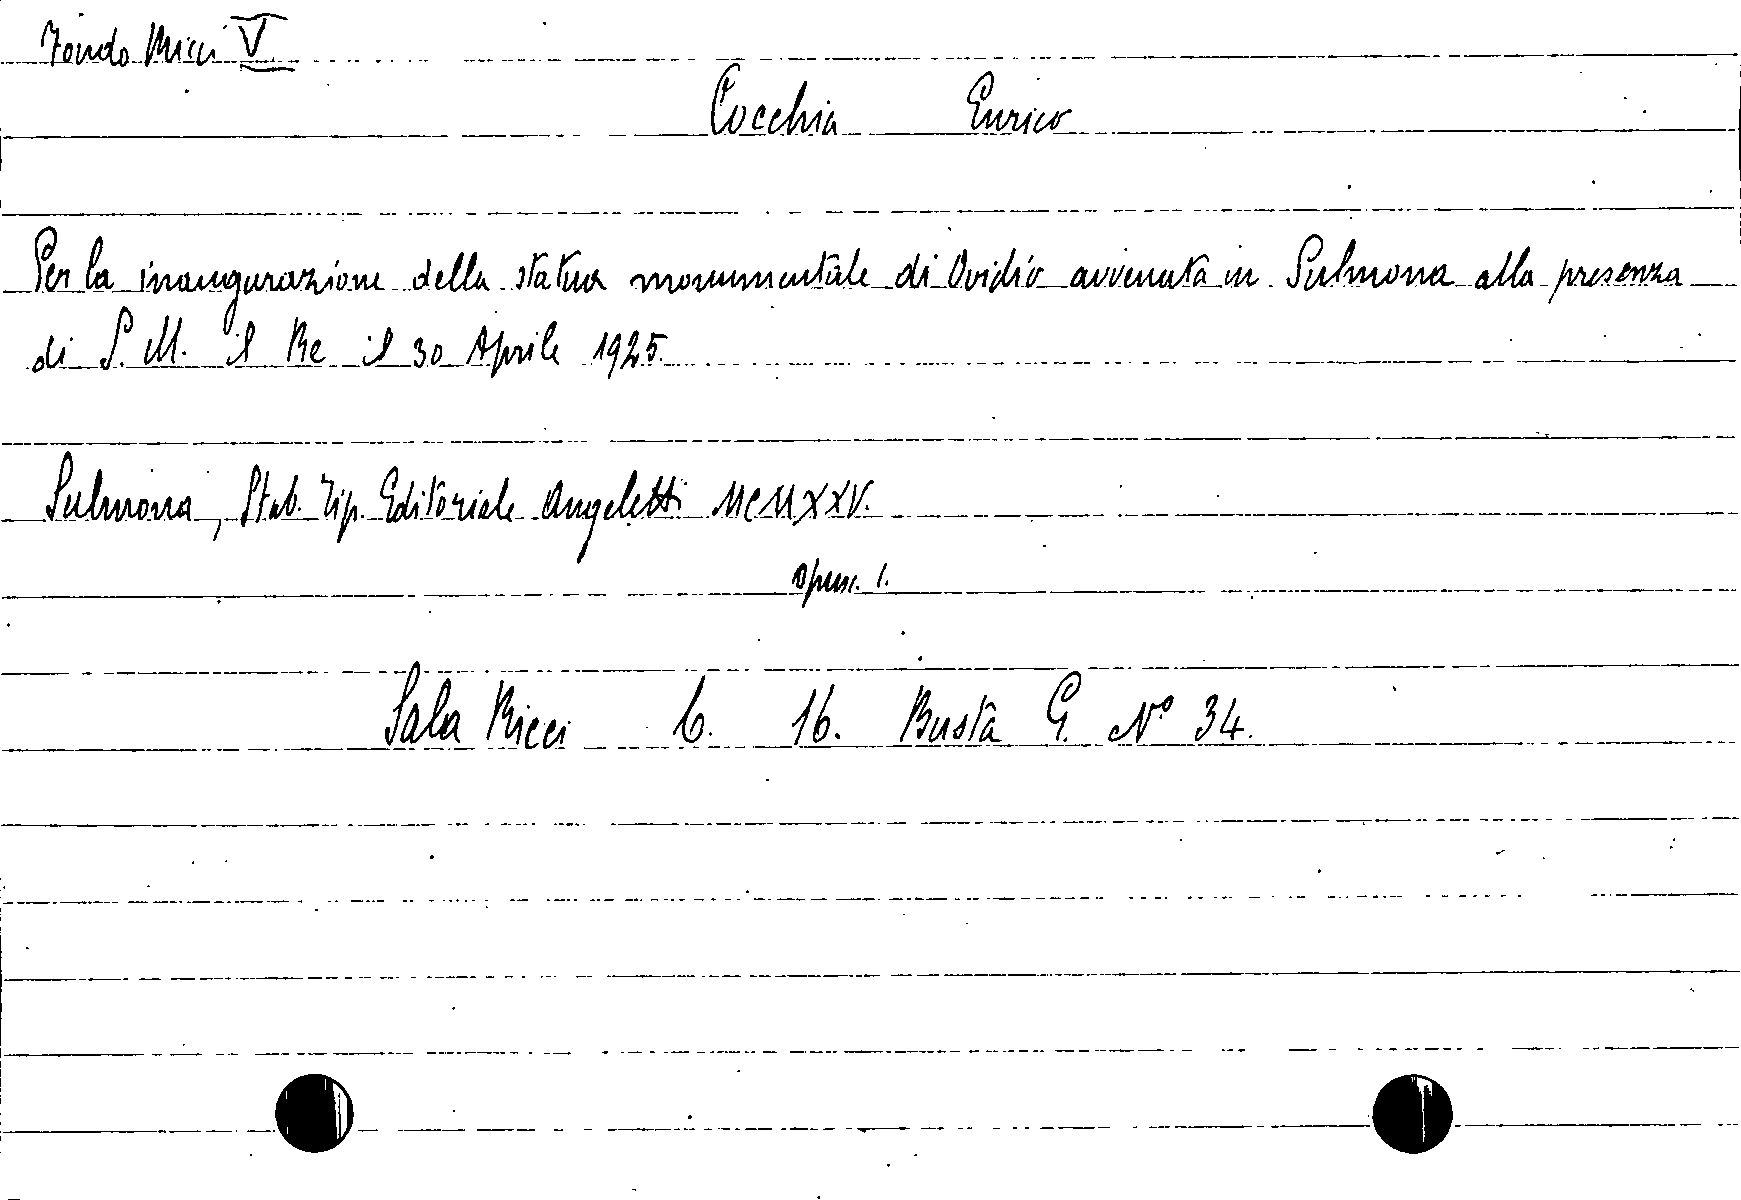 Fondo Ricci V
Cocchia Enrico
Per la inaugurazione della statua monumentale di Ovidio avvenuta in Sulmona alla presenza
di S. M. il Re il 30 Aprile 1925.
Sulmona, Stab. Tip. Editoriale Angeletti MCMXXV.
Opusc. 1.
Sala Ricci C. 16. Busta G. N° 34.